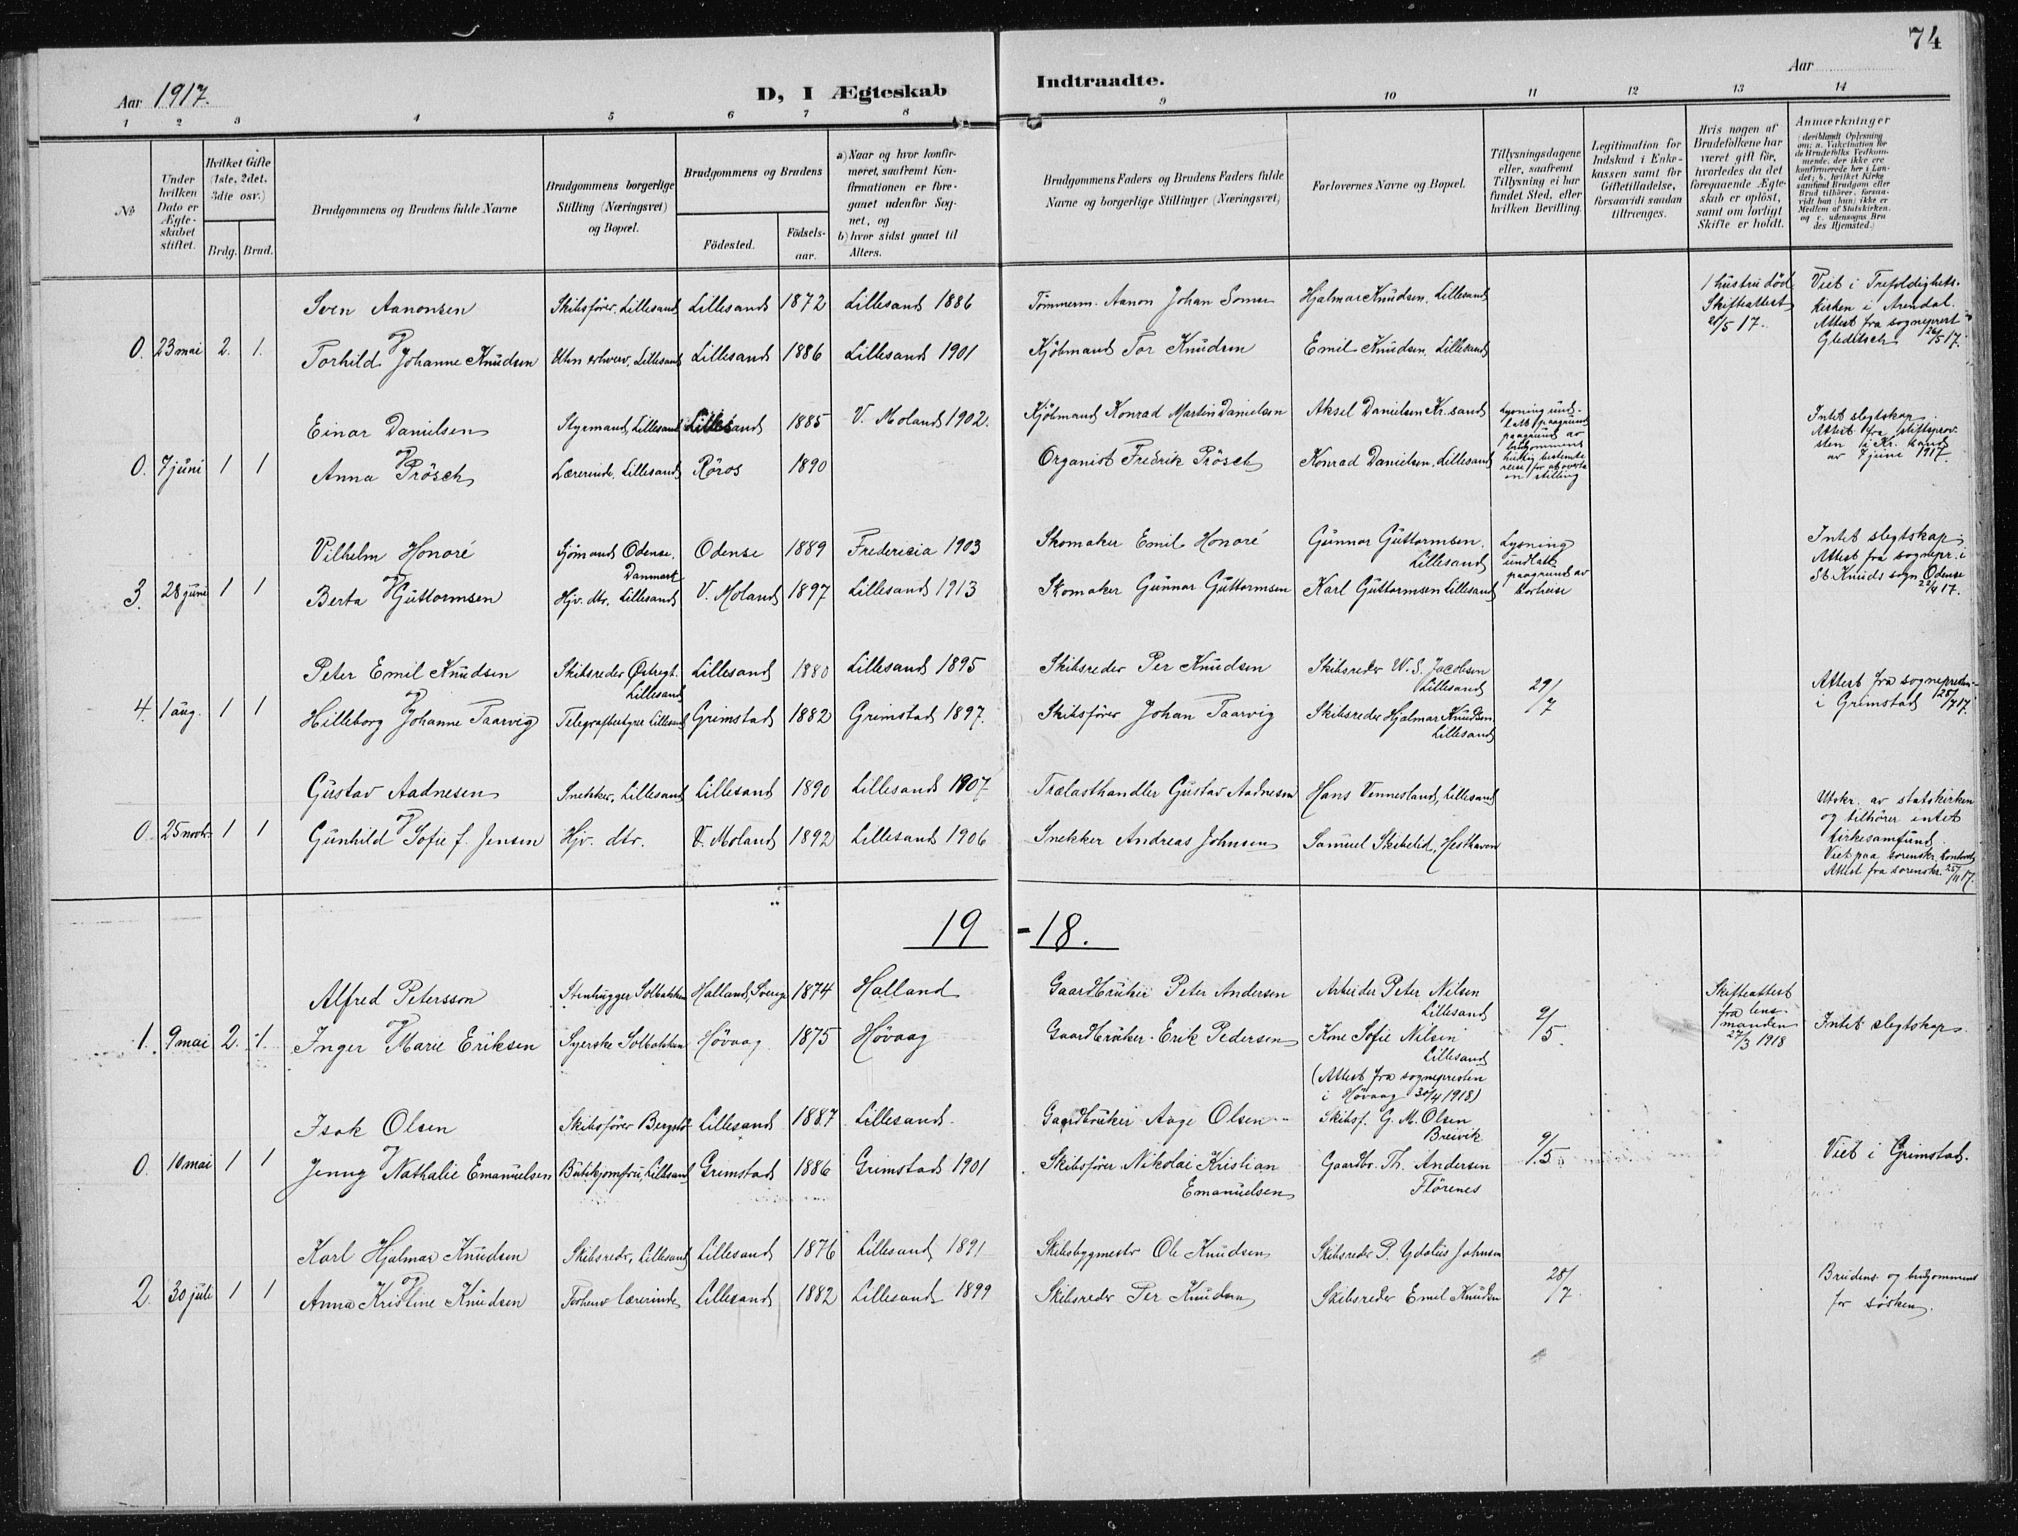 74
Aar 1917.
D, I Ægteskab Indtraadte.
Aar
1 2 3 4 5 6 7 8 9 10 11 12 13 14
No
Under hvilken Dato er Ægteskabet stiftet.
Hvilket Gifte (1ste, 2det, 3die osv.)
Brdg. Brud.
Brudgommens og Brudens fulde Navne
Brudgommens borgerlige Stilling (Næringsvei) og Bopæl.
Brudgommens og Brudens
Födested. Födselsaar.
a) Naar og hvor konfirmeret, saafremt Konfirmationen er foregaaet udenfor Sognet, og
b) hvor sidst gaaet til Alters.
Brudgommens Faders og Brudens Faders fulde Navne og borgerlige Stillinger (Næringsvei)
Forlovernes Navne og Bopæl.
Tillysningsdagene eller, saafremt Tillysning ei har fundet Sted, efter hvilken Bevilling.
Legitimation for Indskud i Enkekassen samt for Giftetilladelse, forsaavidt saadan tiltrænges.
Hvis nogen af Brudefolkene har været gift för, hvorledes da det foregaaende Ægteskab er oplöst, samt om lovligt Skifte er holdt.
Anmærkninger (deriblandt Oplysning om; a. Vakcination for de Brudefolks Vedkommende, der ikke ere konfirmerede her i Landet; b. hvilket Kirkesamfund Brudgom eller Brud tilhörer, forsaavidt han (hun) ikke er Medlem af Statskirken, og c. udensogns Brudes Hjemsted.)
Sven Aanonsen Skibsfører, Lillesand Lillesand 1872 Lillesand 1886 Tømmerm. Aanon Johan Hjalmar Knudsen, Lillesand 1 hustru död Skifteattest 21/5 17. Viet i Trefoldighetskirken i Arendal. Attest fra sogneprest Gleditsch 26/5 17.
0. 23 mai 2. 1. og
Torhild Johanne Knudsen Uten erhverv, Lillesand Lillesand 1886 Lillesand 1901 Kjøbmand Tor Knudsen Emil Knudsen, Lillesand
Einar Danielsen Styrmand, Lillesand Lillesand 1885 V. Moland 1902. Kjøbmand Konrad Martin Danielsen Aksel Danielsen Kr.sand Lysning undlatt paagrund av brudgommens hurtig bestemte reise for at overta en stilling Intet slegtskap. Attest fra stiftsprovsten i Kr.sand av 7 juni 1917.
0. 7 juni 1 1 og
Anna Prösch Lærerinde, Lillesand Röros 1890 Organist Fredrik Prösch Konrad Danielsen, Lillesand
Vilhelm Honoré Sjømand Odense, Danmark Odense 1889 Fredericia 1903 Skomaker Emil Honoré Gunnar Guttormsen, Lillesand Lysning undlatt paagrund av Intet slegtskap. Attest fra sognepr. i St Knuds sogn Odense 22/4 17.
3. 28 juni 1 1 og
Berta Guttormsen Hjv. dtr. Lillesand V. Moland 1897 Lillesand 1913 Skomaker Gunnar Guttormsen Karl Guttormsen Lillesand
Peter Emil Knudsen Skibsreder Østregt. Lillesand Lillesand 1880 Lillesand 1895 Skibsreder Per Knudsen Skibsreder W. S. Jacobsen Lillesand 29/7 Attest fra sognepresten i Grimstad 25/7 17.
4. 1 aug. 1 1 og
Hilleborg Johanne Taarvig Telegrafbestyrer Lillesand Grimstad 1882 Grimstad 1897. Skibsfører Johan Taarvig Skibsreder Hjalmar Knudsen, Lillesand
Gustav Aadnesen Snekker, Lillesand Lillesand 1890 Lillesand 1907 Trælasthandler Gustav Aadnesen Hans Vennesland, Lillesand Utskr. av statskirken og tilhører intet kirkesamfund. Viet paa sorenskr. kontoret Attest fra sorenskr. 25/11 17.
0. 25 novbr. 1 1 og
Gunhild Sofie f. Jensen Hjv. dtr. V. Moland 1892 Lillesand 1906 Snekker Andreas Johnsen Samuel Skibelid, Hesthaven
19 - 18.
Alfred Petersson Stenhugger Solbakken Halland, Sverige 1874 Halland Gaardbruker Peter Andersen Arbeider Peter Nilsen Lillesand 9/5. Skifteattest fra lensmanden 27/3 1918 Intet slegtskap.
1. 9 mai 2. 1. og
Inger Marie Eriksen Syerske Solbakken Høvaag 1875 Høvaag Gaardbruker Erik Pedersen Kone Sofie Nilsen Lillesand
(Attest fra sognepresten i Høvaag 30/4 1918)
Isak Olsen Skibsfører Lillesand 1887 Lillesand. Gaardbruker Aage Olsen Skibsf. G. M. Olsen Breivik 9/5 Viet i Grimstad.
0. 10 mai 1 1 og
Jenny Nathalie Emanuelsen Butikjomfru, Lillesand Grimstad 1886 Grimstad 1901 Skibsfører Nikolai Kristian Emanuelsen Gaardbr. Th. Andersen Flørenes
Karl Hjalmar Knudsen Skibsredr, Lillesand Lillesand 1876 Lillesand 1891 Skibsbygmestr Ole Knudsen Skibsredr P. Ydolius Johnsen 28/7 Brudens og brudgommens far søsken.
2. 30 juli 1 1 og
Anna Kristine Knudsen Forhenv lærerinde Lillesand 1882 Lillesand 1899 Skibsredr Per Knudsen Skibsreder Emil Knudsen